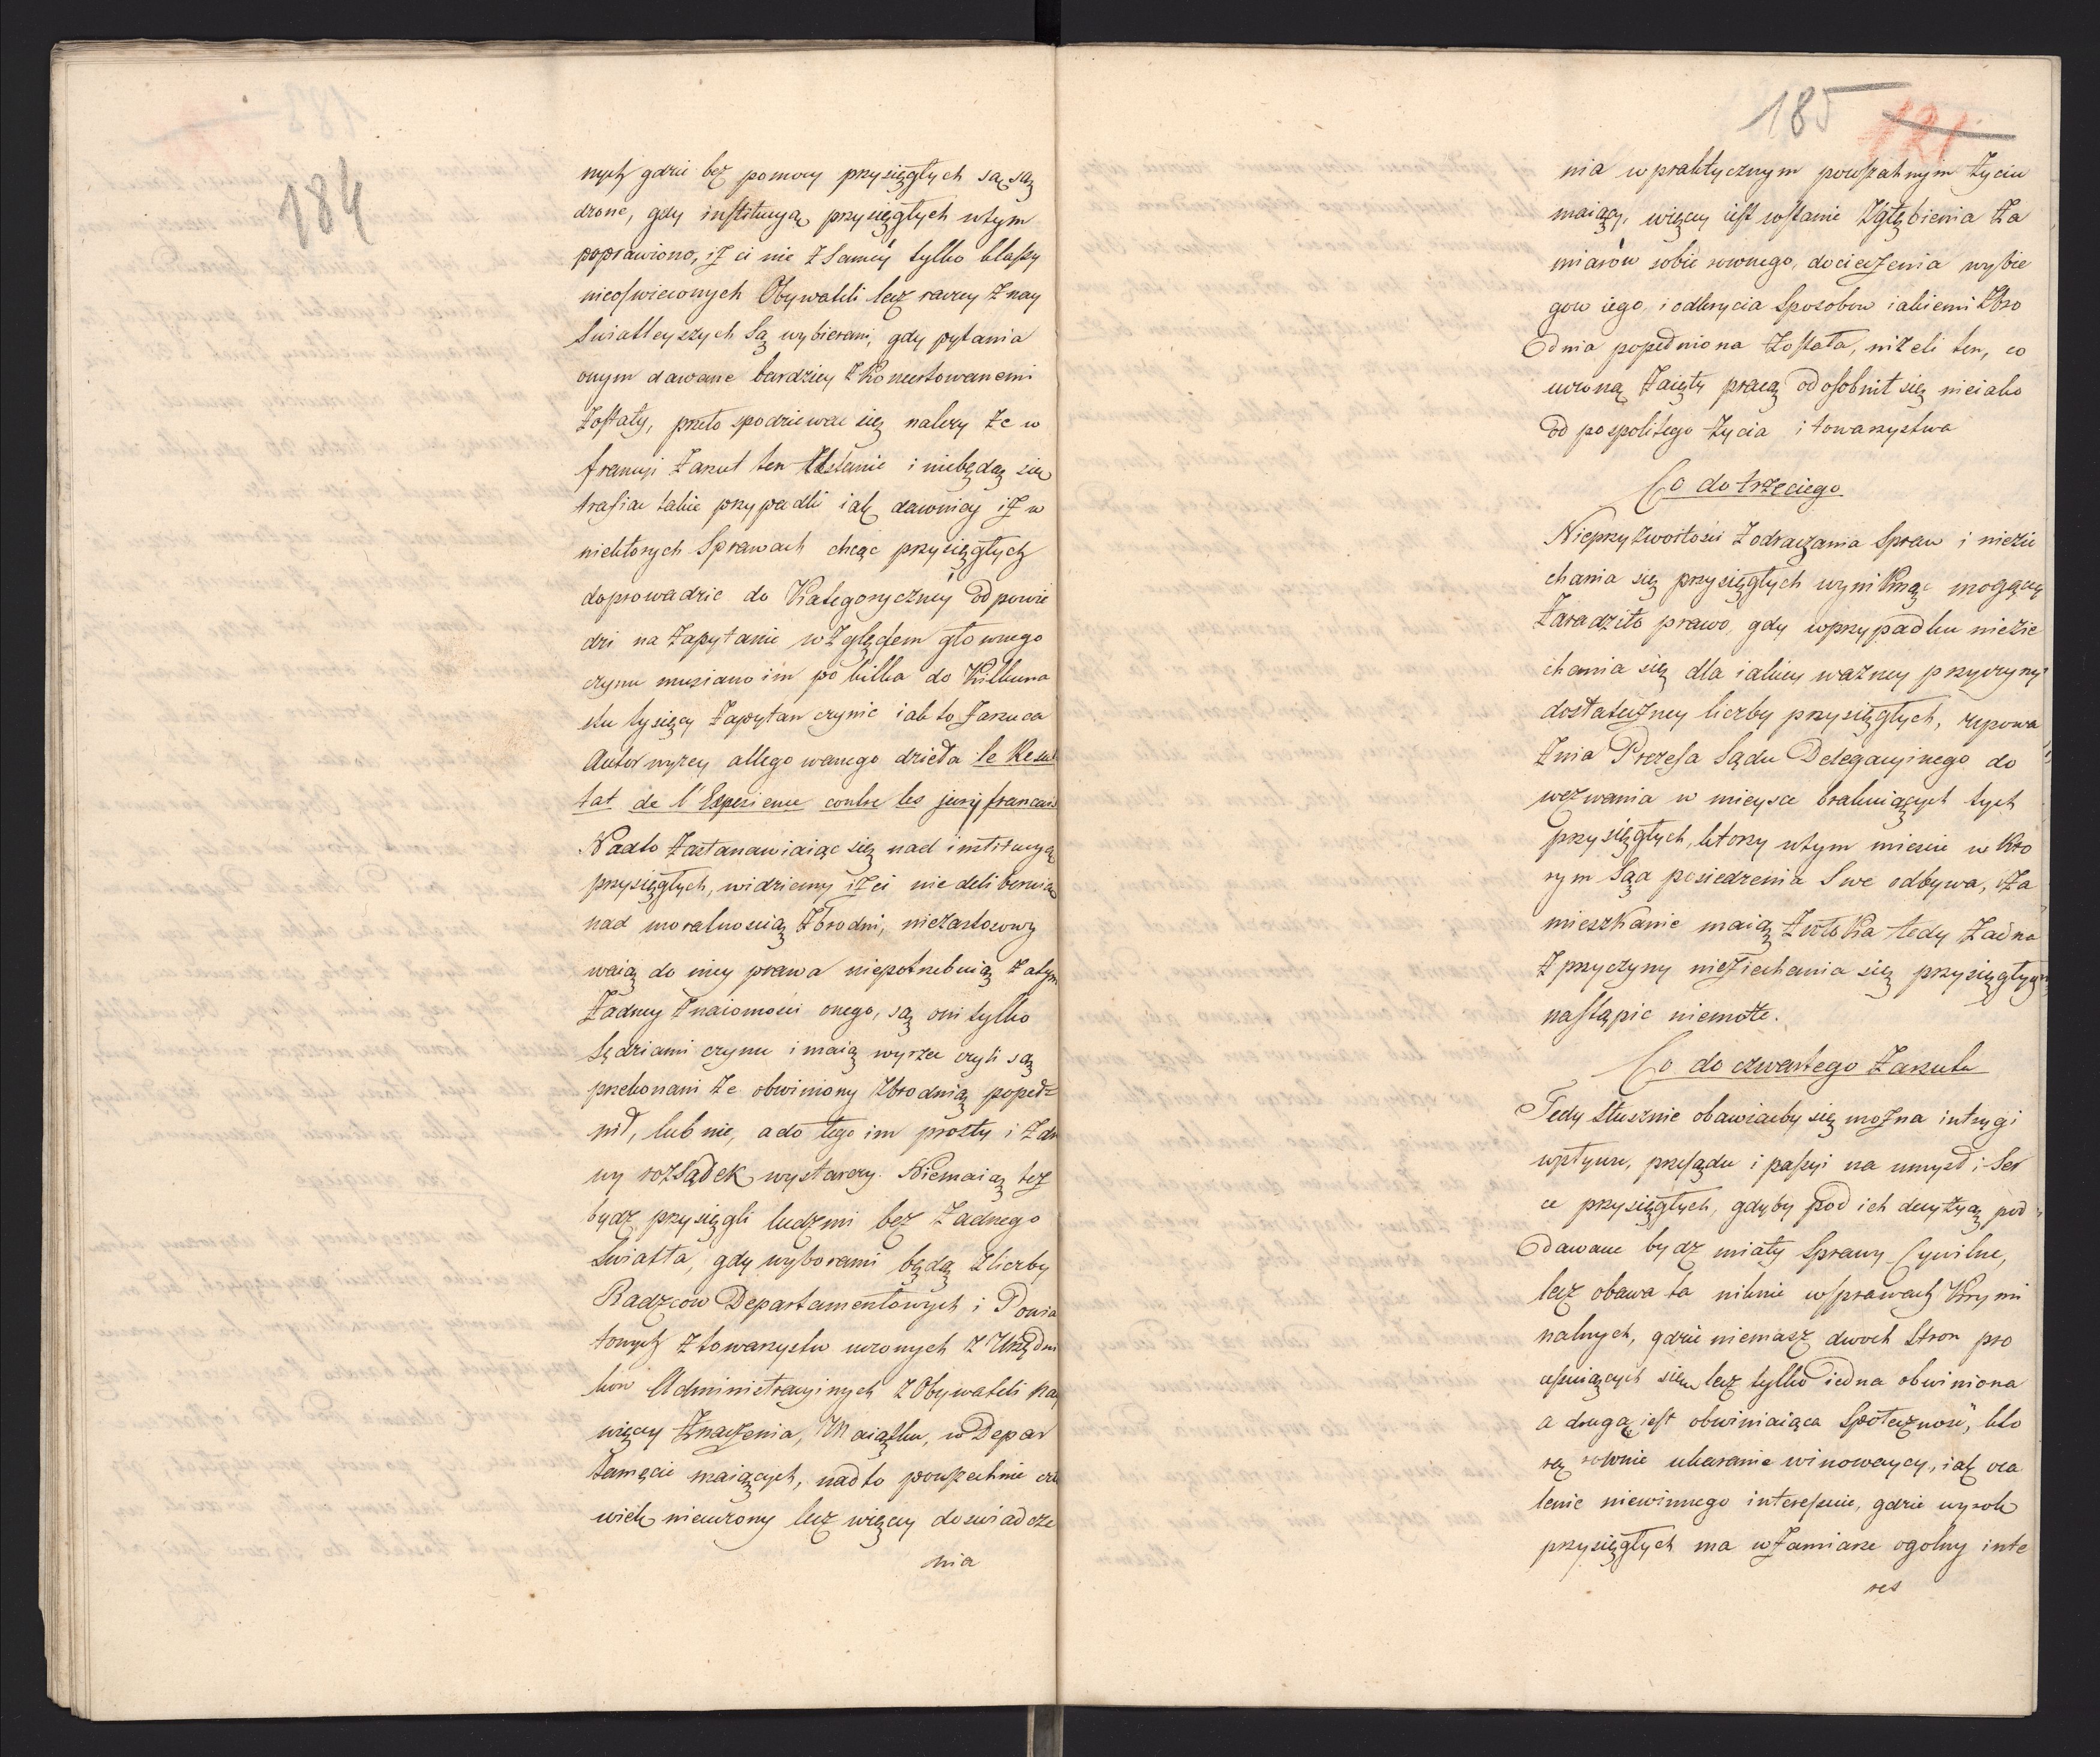 184
nych gdzie bez pomocy przysięgłych są są
dzone, gdy instytucyą przysięgłych wtym
poprawiono, iż ci nie z samey tylko klassy
nieoswieconych Obywateli lecz raczey z nay
swiatleyszych są wybierani, gdy pytania
onym dawane bardziey zkoncertowanemi
zostały, przeto spodziewac się nalezy ze w
francyi zarzut ten ustanie i niebędą się
trafiac takie przypadki iak dawniey iż w
niektorych Sprawach chcąc przysięgłych
doprowadzic do Kategoryczney odpowie
dzi na zapytanie względem głownego
czynu musiano im po kilka do Kilkuna
stu tysięcy zapytan czynic iak to zarzuca
Autor wyzey allegowanego dzieła le Resul
tat de l'Experience contre les jury francais
Nadto zastanawiaiąc się nad instytucyą
przysięgłych, widziemy iż ci nie deliberuią
nad moralnoscią zbrodni, niezastosowy
waią do niey prawa niepotrzebuią zatym
żadney znaiomosci onego, są oni tylko
Sędziami czynu i maią wyrzec czyli są
przekonani ze obwiniony zbrodnią popeł=
nił, lub nie, a do tego im prosty i zdro
wy rozsądek wystarczy. Niemaią tez
bydz przysięgli ludzmi bez zadnego
swiatła, gdy wyborami będą z liczby
Radzcow Departamentowych i Powia
towych z towarzystw uczonych z Urzędni
kow Administracyinych z Obywateli nay
więcey Znaczenia, Maiątku, w Depar
tamęcie maiących, nadto powszechnie czło
wiek nieuczony lecz więcey doswiadcze
nia
185 121
nia w praktycznym powszechnym życiu
maiący, więcey iest wstanie zgłębienia za
miarow sobie rownego, docieczenia wybie
gow iego, i odkrycia Sposobow iakiemi zbro
dnia popełniona została, nizeli ten, co
uczoną zaięty pracą odosobnił się nieiako
od pospolitego życia i towarzystwa
Co do trzeciego
Nieprzyzwoitości z odraczania Spraw i niezie
chania się przysięgłych wyniknąc mogącey
zaradziło prawo, gdy w przypadku niezie
chania się dla iakiey ważney przyczyny
dostateczney liczby przysięgłych, upowa
żnia Prezesa Sądu Delegacyinego do
wezwania w mieysce brakuiących tych
przysięgłych, ktorzy wtym miescie w Kto
rym Sąd posiedzenia Swe odbywa, za
mieszkanie maią Zwłoka tedy żadna
z przyczyny nieziechania się przysięgłych
nastąpic niemoże.
Co do czwartego Zarzutu
Tedy słusznie obawiacby się można intrygi
wpływu, przesądu i passyi na umysł i Ser
ce przysięgłych, gdyby pod ich decyzyą pod
dawane bydz miały Sprawy Cywilne,
lecz obawa ta niknie w sprawach Krymi
nalnych, gdzie niemasz dwoch Stron pro
cessuiących się lecz tylko iedna obwiniona
a druga iest obwiniaiąca Społeczność, kto
rą rownie ukaranie winowaycy, iak oca
lenie niewinnego interessuie, gdzie wyrok
przysięgłych ma w zamiarze ogolny inte
res